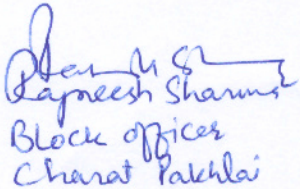 Rajneesh Sharma
Block officer
Charat Pakhlai